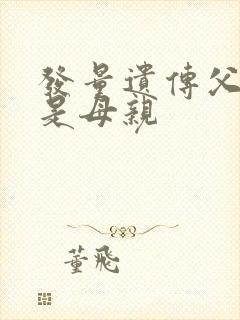 發量遺傳父
是母親
董飛